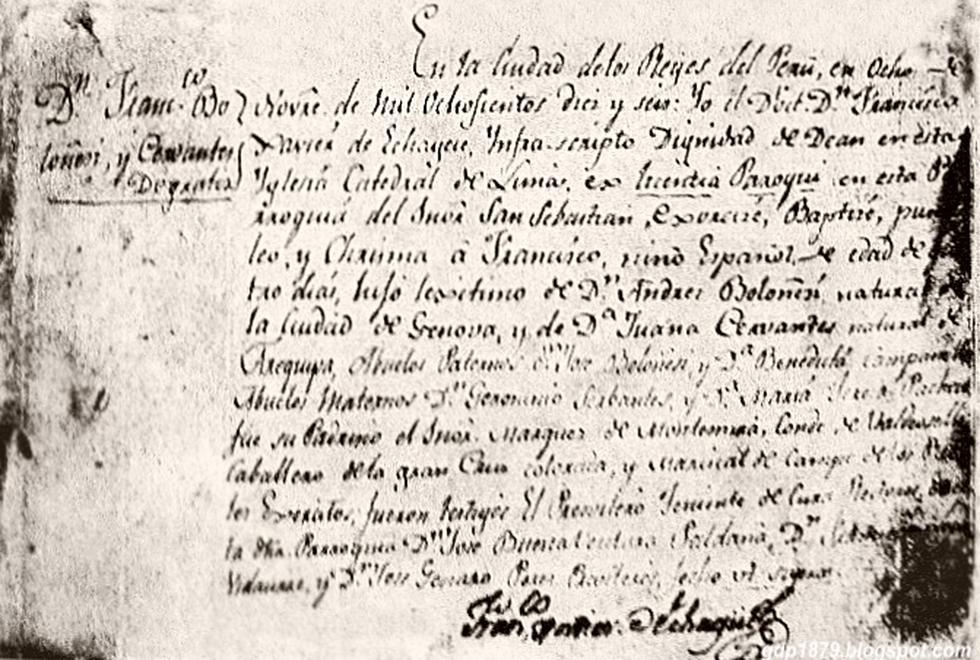 En la Ciudad de los Reyes del Perú, en Ocho de
Dn. Franco. Bo
loñesi, y Cervantes
Novre. de Mil Ochosientos diez y seis: Yo el Doct. Dn. Francisco
Xavier de Echague, Infrascripto Dignidad de Dean en esta
Iglesia Catedral de Lima, ex licentia Parroqui en esta Pa
rroquia del Snor. San Sebastian, Exorcisé, Baptisé, puse
leo, y Chrisma à Francisco, niño Español, de edad de
tro dias, hijo lexitimo de Dn. Andres Boloñesi, natural de
la Ciudad de Genova, y de Da. Juana Cervantes natural de
Arequipa, Abuelos Paternos Dn. Jose Boloñesi, y Da. Benedicta
Abuelos Maternos Dn. Geronimo Serbantes, y Da. Maria Pacheco
fue su Padrino el Snor. Marquez de Montemira, Conde de
Caballero de la gran Cruz y Mariscal de Campo de los Rea
les Exercitos, fueron testigos El Presvitero Teniente de Cura
ta dha. Parroquia Dn. Jose Buenaventura Saldaña, Dn.
Vidaurre, y Dn. Jose Genaro fecho ut supra
Franco. Xavier de Echague
gdp1879.blogspot.com